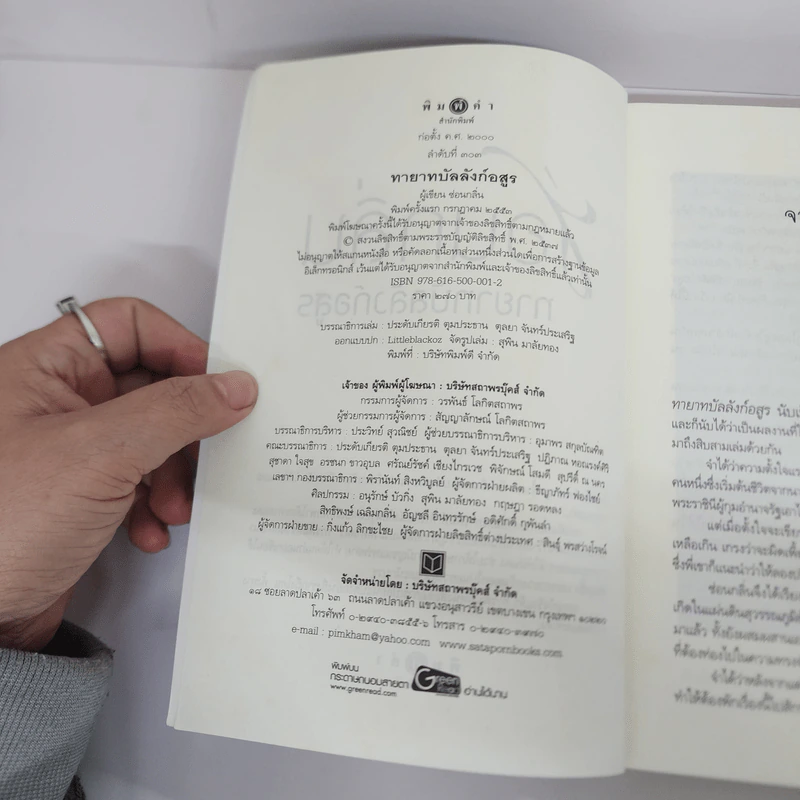 พิมพ์คำ
สำนักพิมพ์
ก่อตั้ง ค.ศ. ๒๐๐๐
ลำดับที่ ๓๐๓
ทายาทบัลลังก์อสูร
ผู้เขียน ซ่อนกลิ่น
พิมพ์ครั้งแรก กรกฎาคม ๒๕๕๓
พิมพ์โฆษณาครั้งนี้ได้รับอนุญาตจากเจ้าของลิขสิทธิ์ตามกฎหมายแล้ว
© สงวนลิขสิทธิ์ตามพระราชบัญญัติลิขสิทธิ์ พ.ศ. ๒๕๓๗
ไม่อนุญาตให้สแกนหนังสือ หรือคัดลอกเนื้อหาส่วนหนึ่งส่วนใดเพื่อการสร้างฐานข้อมูล
อิเล็กทรอนิกส์ เว้นแต่ได้รับอนุญาตจากสำนักพิมพ์และเจ้าของลิขสิทธิ์แล้วเท่านั้น
ISBN 978-616-500-001-2
ราคา ๒๗๐ บาท
บรรณาธิการเล่ม : ประดับเกียรติ ตุมประธาน ตุลยา จันทร์ประเสริฐ
ออกแบบปก : Littleblackoz จัดรูปเล่ม : สุพิน มาลัยทอง
พิมพ์ที่ : บริษัทพิมพ์ดี จำกัด
เจ้าของ ผู้พิมพ์ผู้โฆษณา : บริษัทสถาพรบุ๊คส์ จำกัด
กรรมการผู้จัดการ : วรพันธ์ โลกิตสถาพร
ผู้ช่วยกรรมการผู้จัดการ : สัญญาลักษณ์ โลกิตสถาพร
บรรณาธิการบริหาร : ประวิทย์ สุวณิชย์ ผู้ช่วยบรรณาธิการบริหาร : อุมาพร สกุลบัณฑิต
คณะบรรณาธิการ : ประดับเกียรติ ตุมประธาน ตุลยา จันทร์ประเสริฐ ปฏิภาณ หอณรงค์ศิริ
สุชาดา ใจสุข อรชนก ขาวอุบล ศรัณย์รัชต์ เชียงไกรเวช พิจักษณ์ โสมดี สุปรีดิ์ ณ นคร
เลขาฯ กองบรรณาธิการ : พิรานันท์ สิงหวิบูลย์ ผู้จัดการฝ่ายผลิต : ธีญาภัทร์ ฟองไชย์
ศิลปกรรม : อนุรักษ์ บัวกิ่ง สุพิน มาลัยทอง กฤษฎา รอดหลง
สิทธิพงษ์ เฉลิมกลิ่น อัญชลี อินทรรักษ์ อดิศักดิ์ กุพันลำ
ผู้จัดการฝ่ายขาย : กิ่งแก้ว ลิกขะไชย ผู้จัดการฝ่ายลิขสิทธิ์ต่างประเทศ : สินธุ์ พรสว่างโรจน์
จัดจำหน่ายโดย : บริษัทสถาพรบุ๊คส์ จำกัด
๑๘ ซอยลาดปลาเค้า ๖๓ ถนนลาดปลาเค้า แขวงอนุสาวรีย์ เขตบางเขน กรุงเทพฯ ๑๐๒๒๐
โทรศัพท์ ๐-๒๙๔๐-๓๘๕๕-๖ โทรสาร ๐-๒๙๔๐-๓๙๗๐
e-mail : pimkham@yahoo.com www.satapornbooks.com
พิมพ์บน
กระดาษถนอมสายตา
www.greenread.com
Green Read
อ่านได้นาน
ทายาทบัลลังก์อสูร นับเ
และก็นับได้ว่าเป็นผลงานที่
มาถึงสิบสามเล่มด้วยกัน
จำได้ว่าความตั้งใจแร
คนหนึ่งซึ่งเริ่มต้นชีวิตจาก
พระราชินีผู้กุมอำนาจรัฐเอาไ
แต่เมื่อตั้งใจจะเขีย
เหลือเกิน เกรงว่าจะผิดเพี้
ซึ่งพี่เขาก็แนะนำว่าให้ลอง
ซ่อนกลิ่นจึงได้เรีย
เกิดในแผ่นดินสุวรรณภูมิ
มาแล้ว ทั้งยังผสมผสาน
ที่ต้องท่องไปในความทรง
จำได้ว่าหลังจากแต่
ทำให้ต้องพักเรื่องนี้ไปสัก